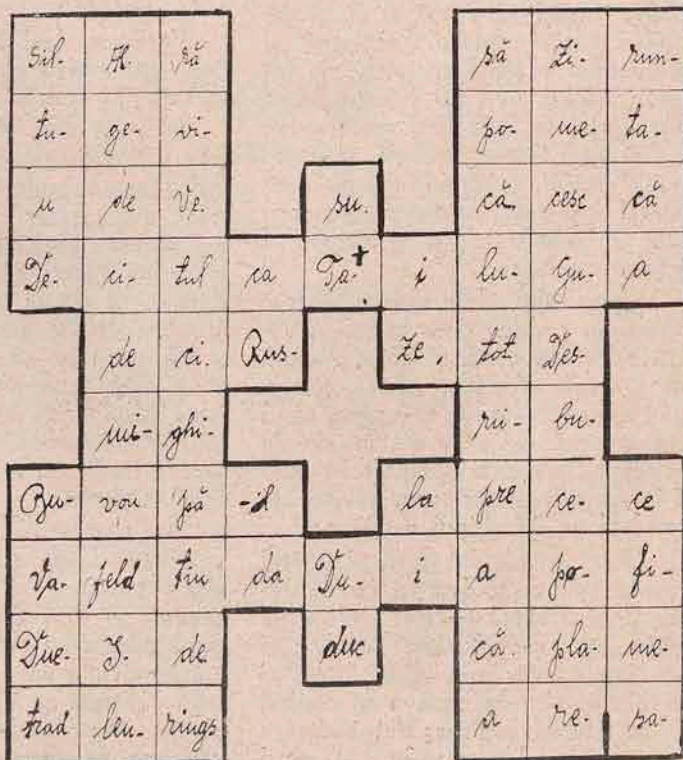 Sil- Al. să să Zi- run-
tu- ge- vi- po- me- ta-
u de Ve. su. că. cesc că
De- ci- tul ca Ta- i lu- Gu- a
de ci. Rus- ze, tot Des-
mi- ghi- ru- bu-
Bu- vou pă -il la pre ce- ce
Va- feld tiu da Du- i a po- fi-
Due- I. de duc că. pla- me-
trad leu- rings a re- sa-